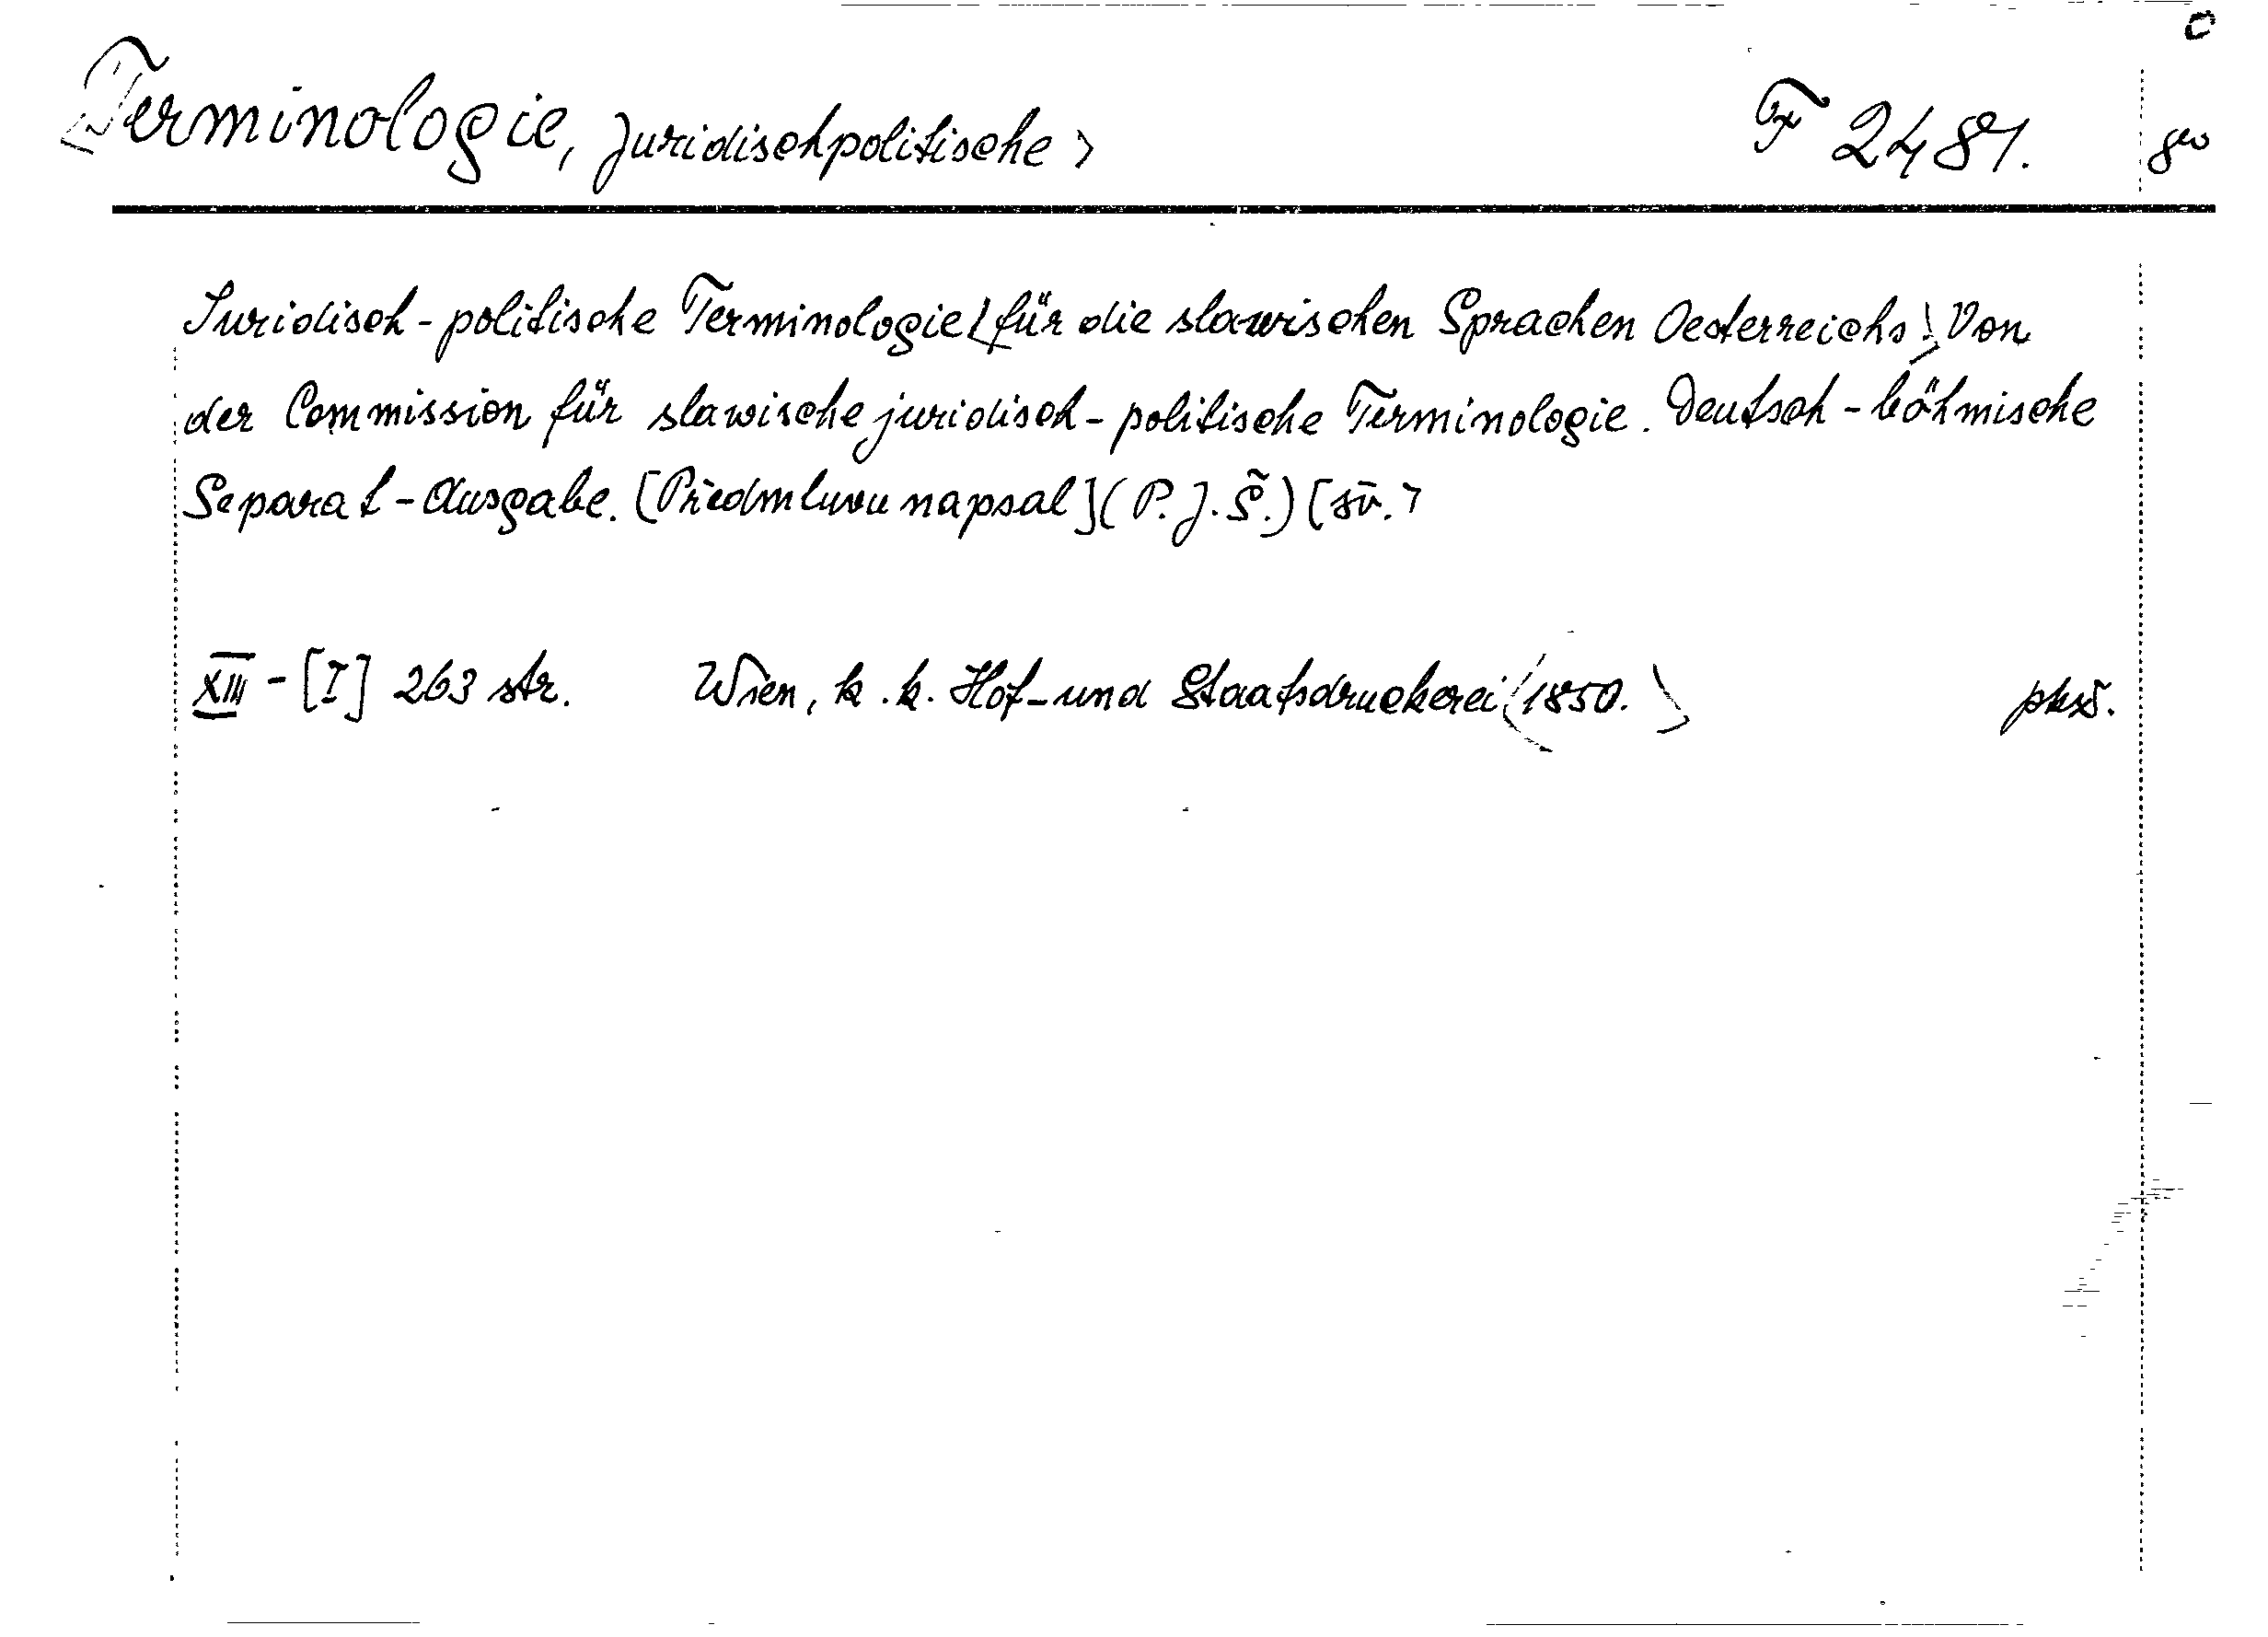 Terminologie, Juridischpolitische > F 2481. 8vo
Juridisch-politische Terminologie (für die slawischen Sprachen Oesterreichs) Von
der Commission für slawische juridisch-politische Terminologie. Deutsch-böhmische
Separat-Ausgabe. [Předmluvu napsal] (P. J. Š.) [sv.]
XIII-[I] 263 str. Wien, k. k. Hof-und Staatsdruckerei (1850.)